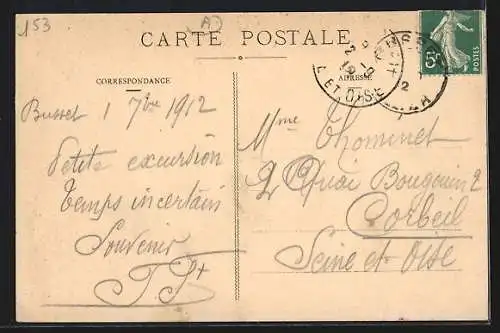 153
A
CARTE POSTALE
CORRESPONDANCE
ADRESSE
5c
POSTES
ET OISE
Busset 1 7bre 1912
Petite excursion
temps incertain
Souvenir
Mme Thominet
2 Quai Bourgouin 2
Corbeil
Seine et Oise